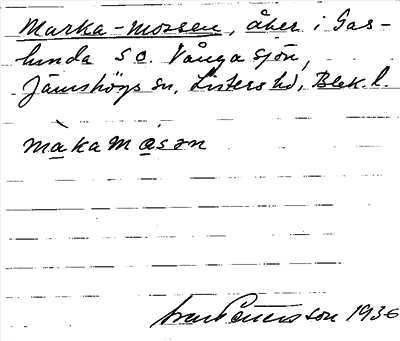 Marka-mossen, åker i Gas-
lunda SO. Vånga sjön,
Jämshögs sn, Listers hd, Blek. l.
màkamàsən
Pettersson 1936